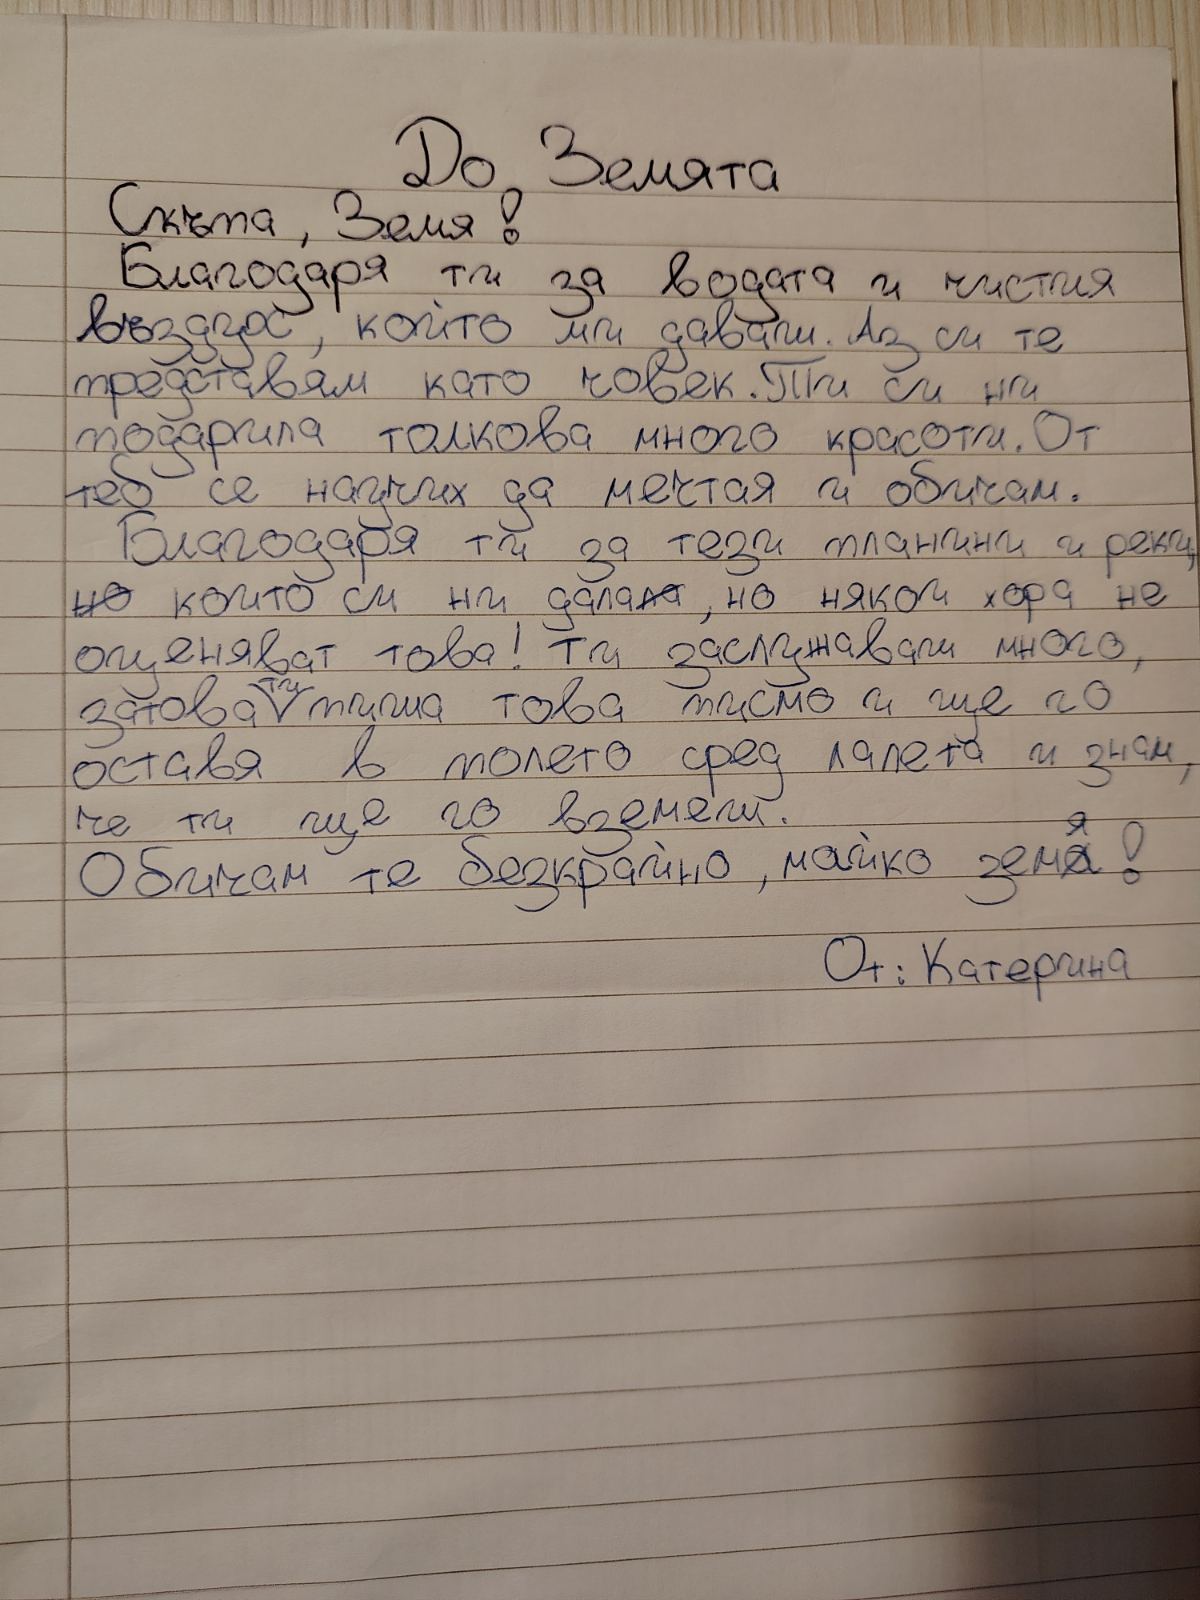 До Земята
Скъпа, Земя!
Благодаря ти за водата и чистия
въздух, който ми даваш. Аз си те
представям като човек. Ти си ни
подарила толкова много красоти. От
теб се научих да мечтая и обичам.
Благодаря ти за тези планини и реки,
но които си ни далала, но някои хора не
оценяват това! Ти заслужаваш много,
затова ти пиша това писмо и ще го
оставя в полето сред лалета и знам,
че ти ще го вземеш.
Обичам те безкрайно, майко земя!
От: Катерина